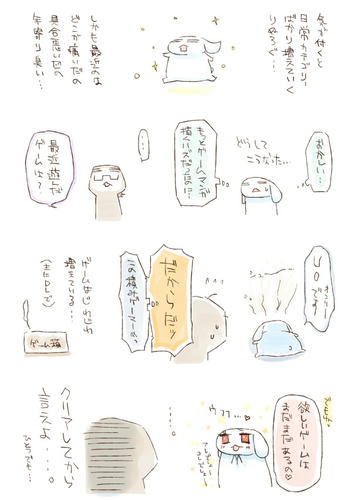 気が付くと
日常カテゴリー
ばかり増えていく
りぬろぐ…
しかも最近のは
どこが痛いだの
具合悪いだの
年寄り臭い…
おかしい…
どうして
こうなった…
もっとゲームマンガ
描くハズだったのに…
…
最近遊んだ
ゲームは？
U○です！
シュー
だからだッ
この積みゲーマーがっ
ゲームはじわじわ
増えてる…
(主にDLで)
ゲーム箱
欲しいゲームは
まだまだあるの♥
ウフフ…♥
…。
クリアしてから
言えよ…。
ひとつでも…。